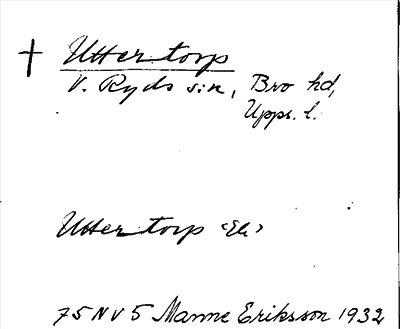 † Uttertorp
V. Ryds s:n, Bro hd,
Upps. l.
Uttertorp
75 NV5 Manne Eriksson 1932